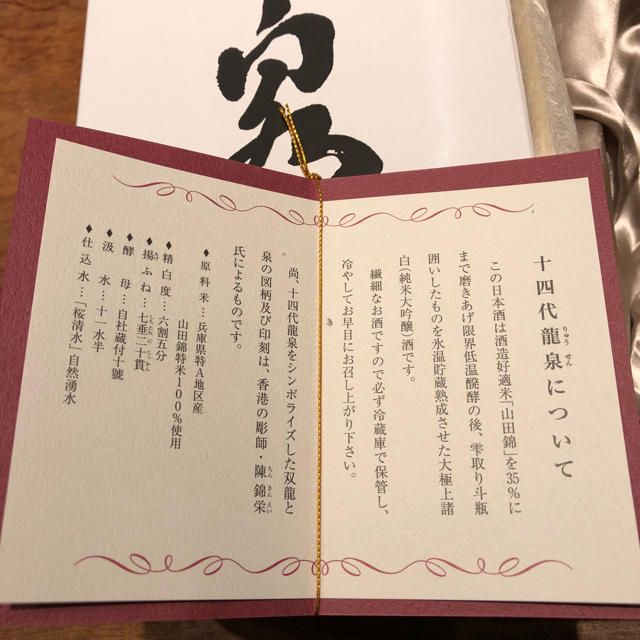 泉
十四代龍泉について
りゅう せん
この日本酒は酒造好適米「山田錦」を35%に
まで磨きあげ限界低温醗酵の後、雫取り斗瓶
囲いしたものを氷温貯蔵熟成させた大極上諸
白(純米大吟醸)酒です。
繊細なお酒ですので必ず冷蔵庫で保管し、
冷やしてお早目にお召し上がり下さい。
尚、十四代龍泉をシンボライズした双龍と
泉の図柄及び印刻は、香港の彫師・陳錦栄
ちん きん えい
氏によるものです。
♦原料米…兵庫県特A地区産
山田錦特米100%使用
♦精白度…六割五分
♦揚ふね…七垂二十貫
♦酵母…自社蔵付十號
♦汲水…十一水半
♦仕込水…「桜清水」自然湧水